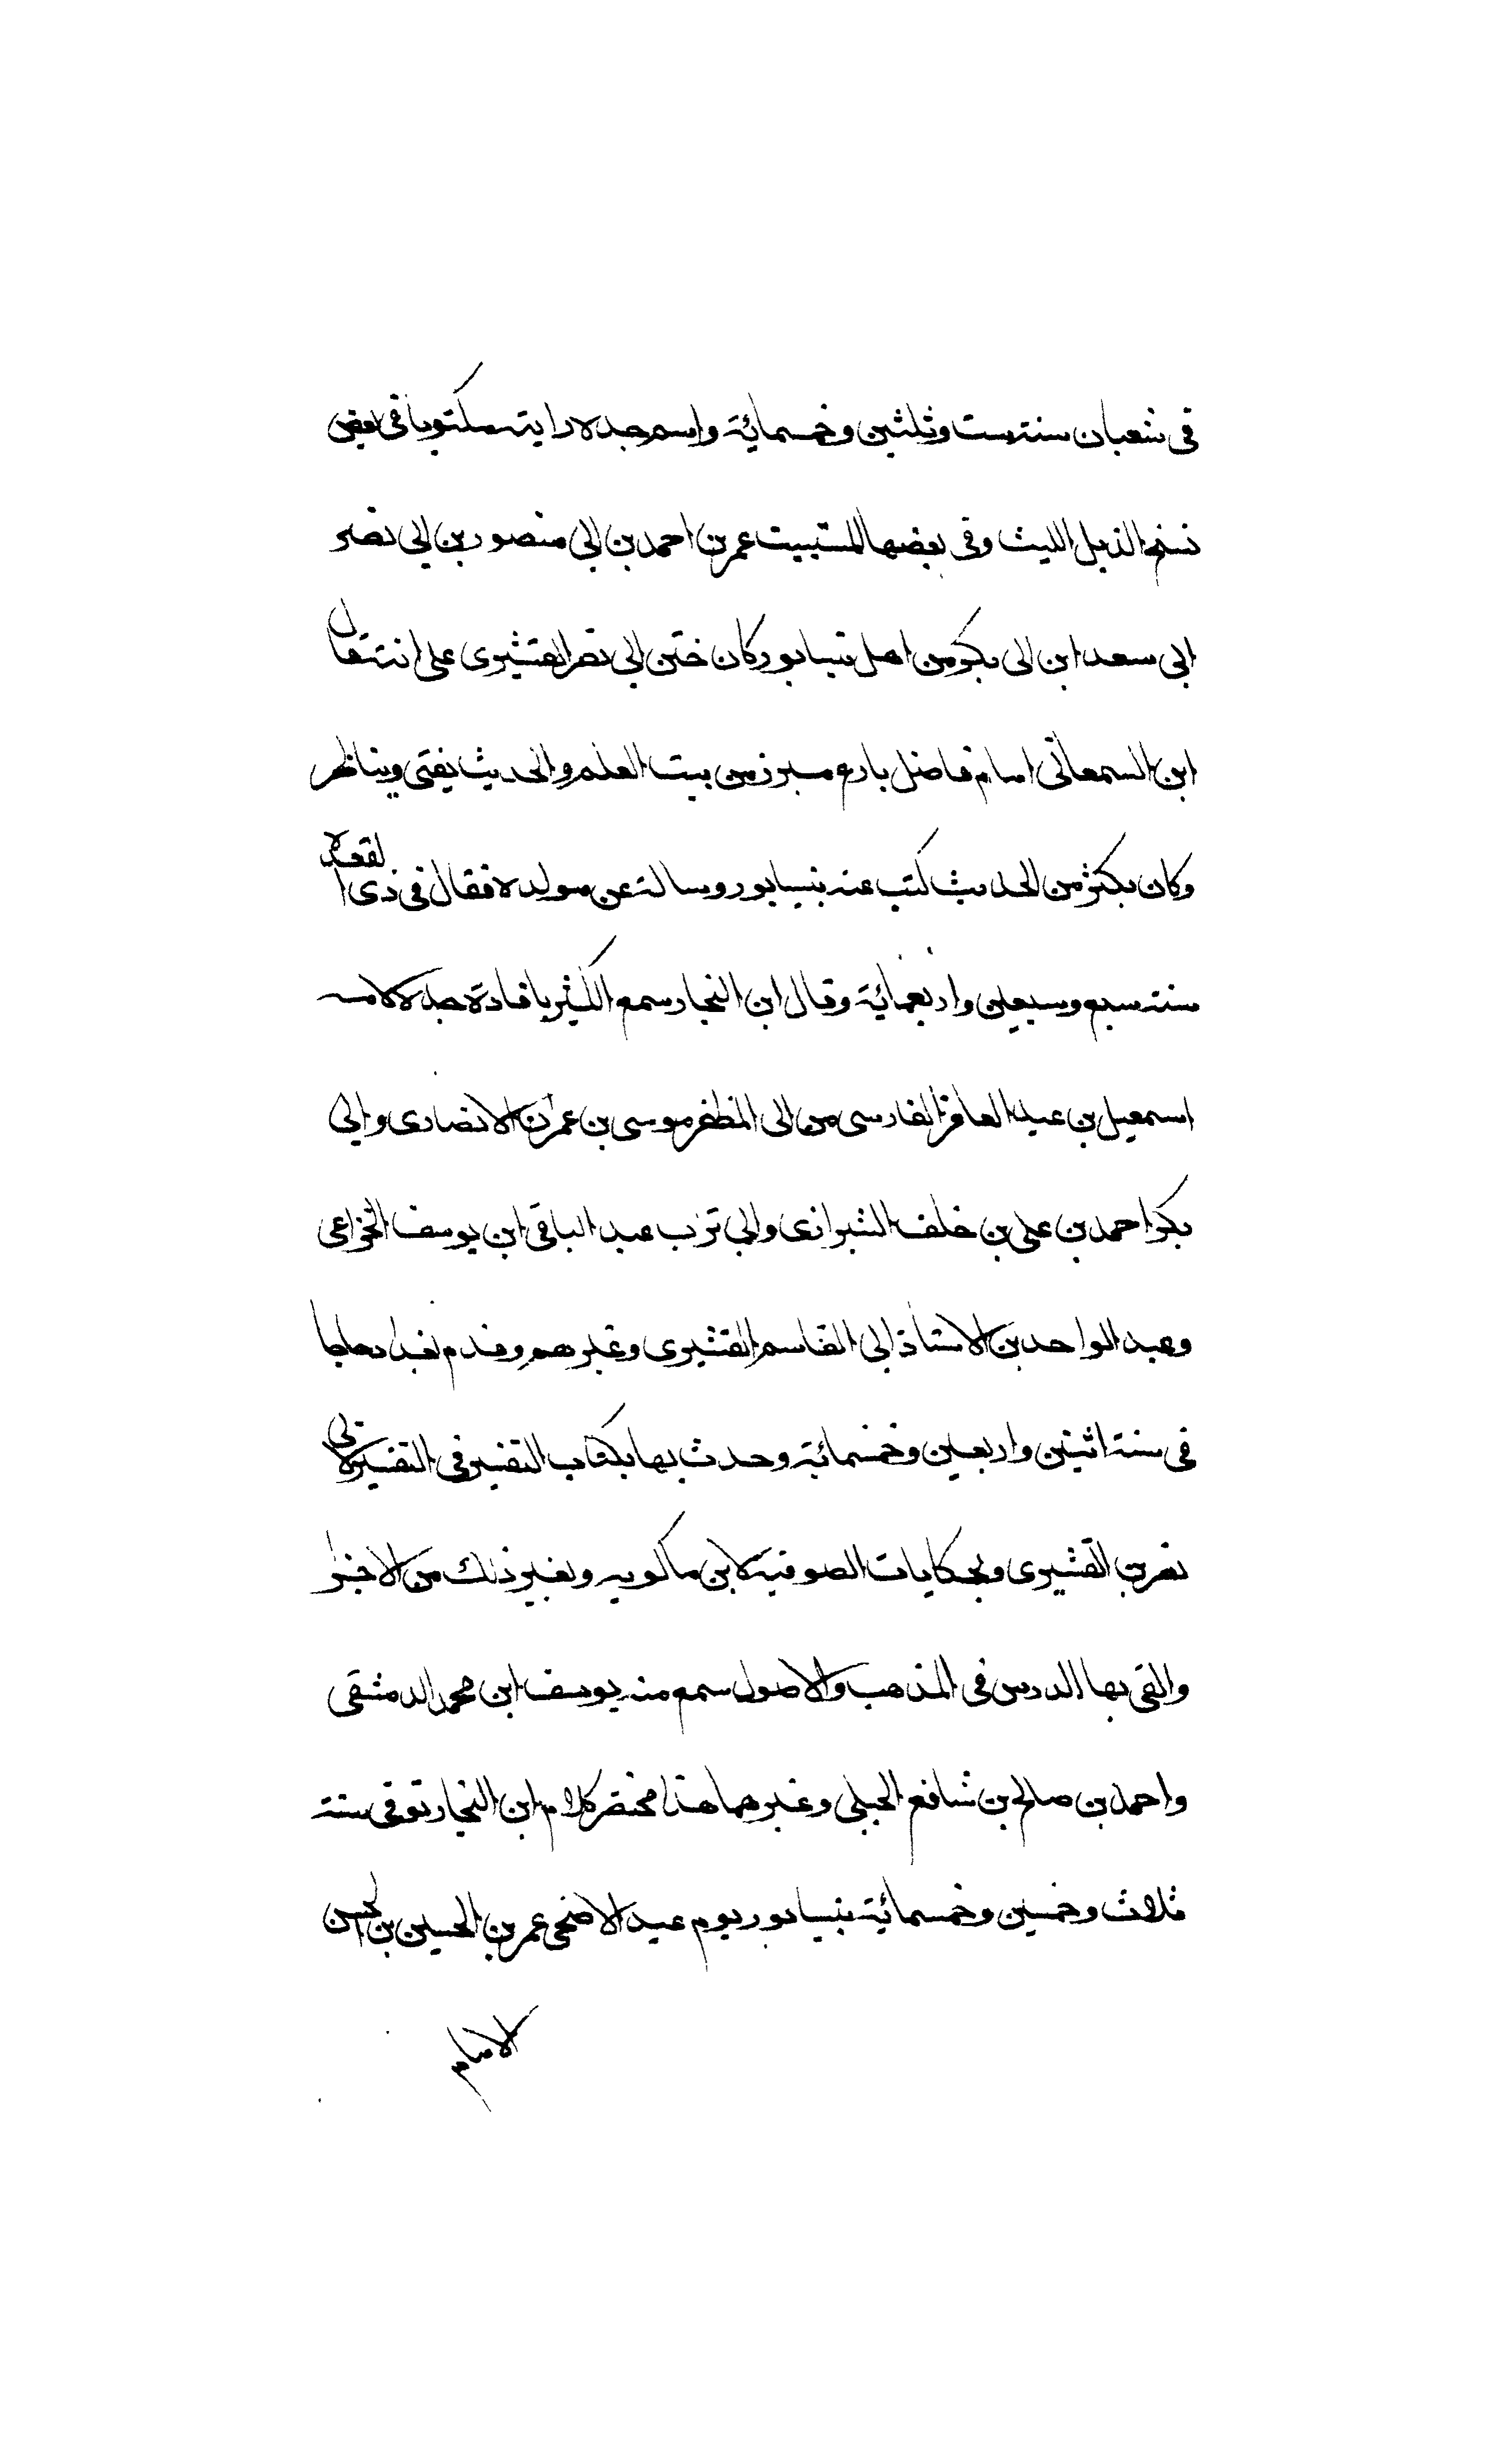 فى شعبان سنة ست وثلثين وخمسمائة واسم جده رايته مكتوبا فى بعض
نسخ الذيل الليث وفى بعضها المستبيت عمر بن احمد بن ابى منصور بن ابى نصر
ابى سعد ابن ابى بكر من اهل نيسابور كان ختن ابى نصر القشيرى على ابنته قال
ابن السمعانى امام فاضل بارع مبرز من بيت العلم والحديث يفتى ويناظر
وكان يكثر من الحديث كتب عنه بنيسابور وسالته عن مولده فقال فى ذى القعدة
سنة سبع وسبعين واربعمائة وقال ابن النجار سمع الكثير بافادة جده لامه
اسمعيل بن عبد الغافر الفارسى من ابى المظفر موسى بن عمران الانصارى وابى
بكر احمد بن على بن خلف الشيرازى وابى تراب عبد الباقى ابن يوسف الخزاعى
وعبد الواحد بن الاستاذ ابى القاسم القشيرى وغيرهم وقدم بغداد حاجا
فى سنة اثنين واربعين وخمسمائة وحدث بها بكتاب التفسير فى التفسير لابى
نصر بن القشيرى وبحكايات الصوفية لابن ماكويه وبغير ذلك من الاجزاء
والقى بها الدرس فى المذهب والاصول سمع منه يوسف ابن محمد الدمشقى
واحمد بن صالح بن شافع الجيلى وغيرهما هذا مختصر كلام ابن النجار توفى سنة
ثلاث وخمسين وخمسمائة بنيسابور يوم عيد الاضحى عمر بن الحسين بن الحسن
الامام